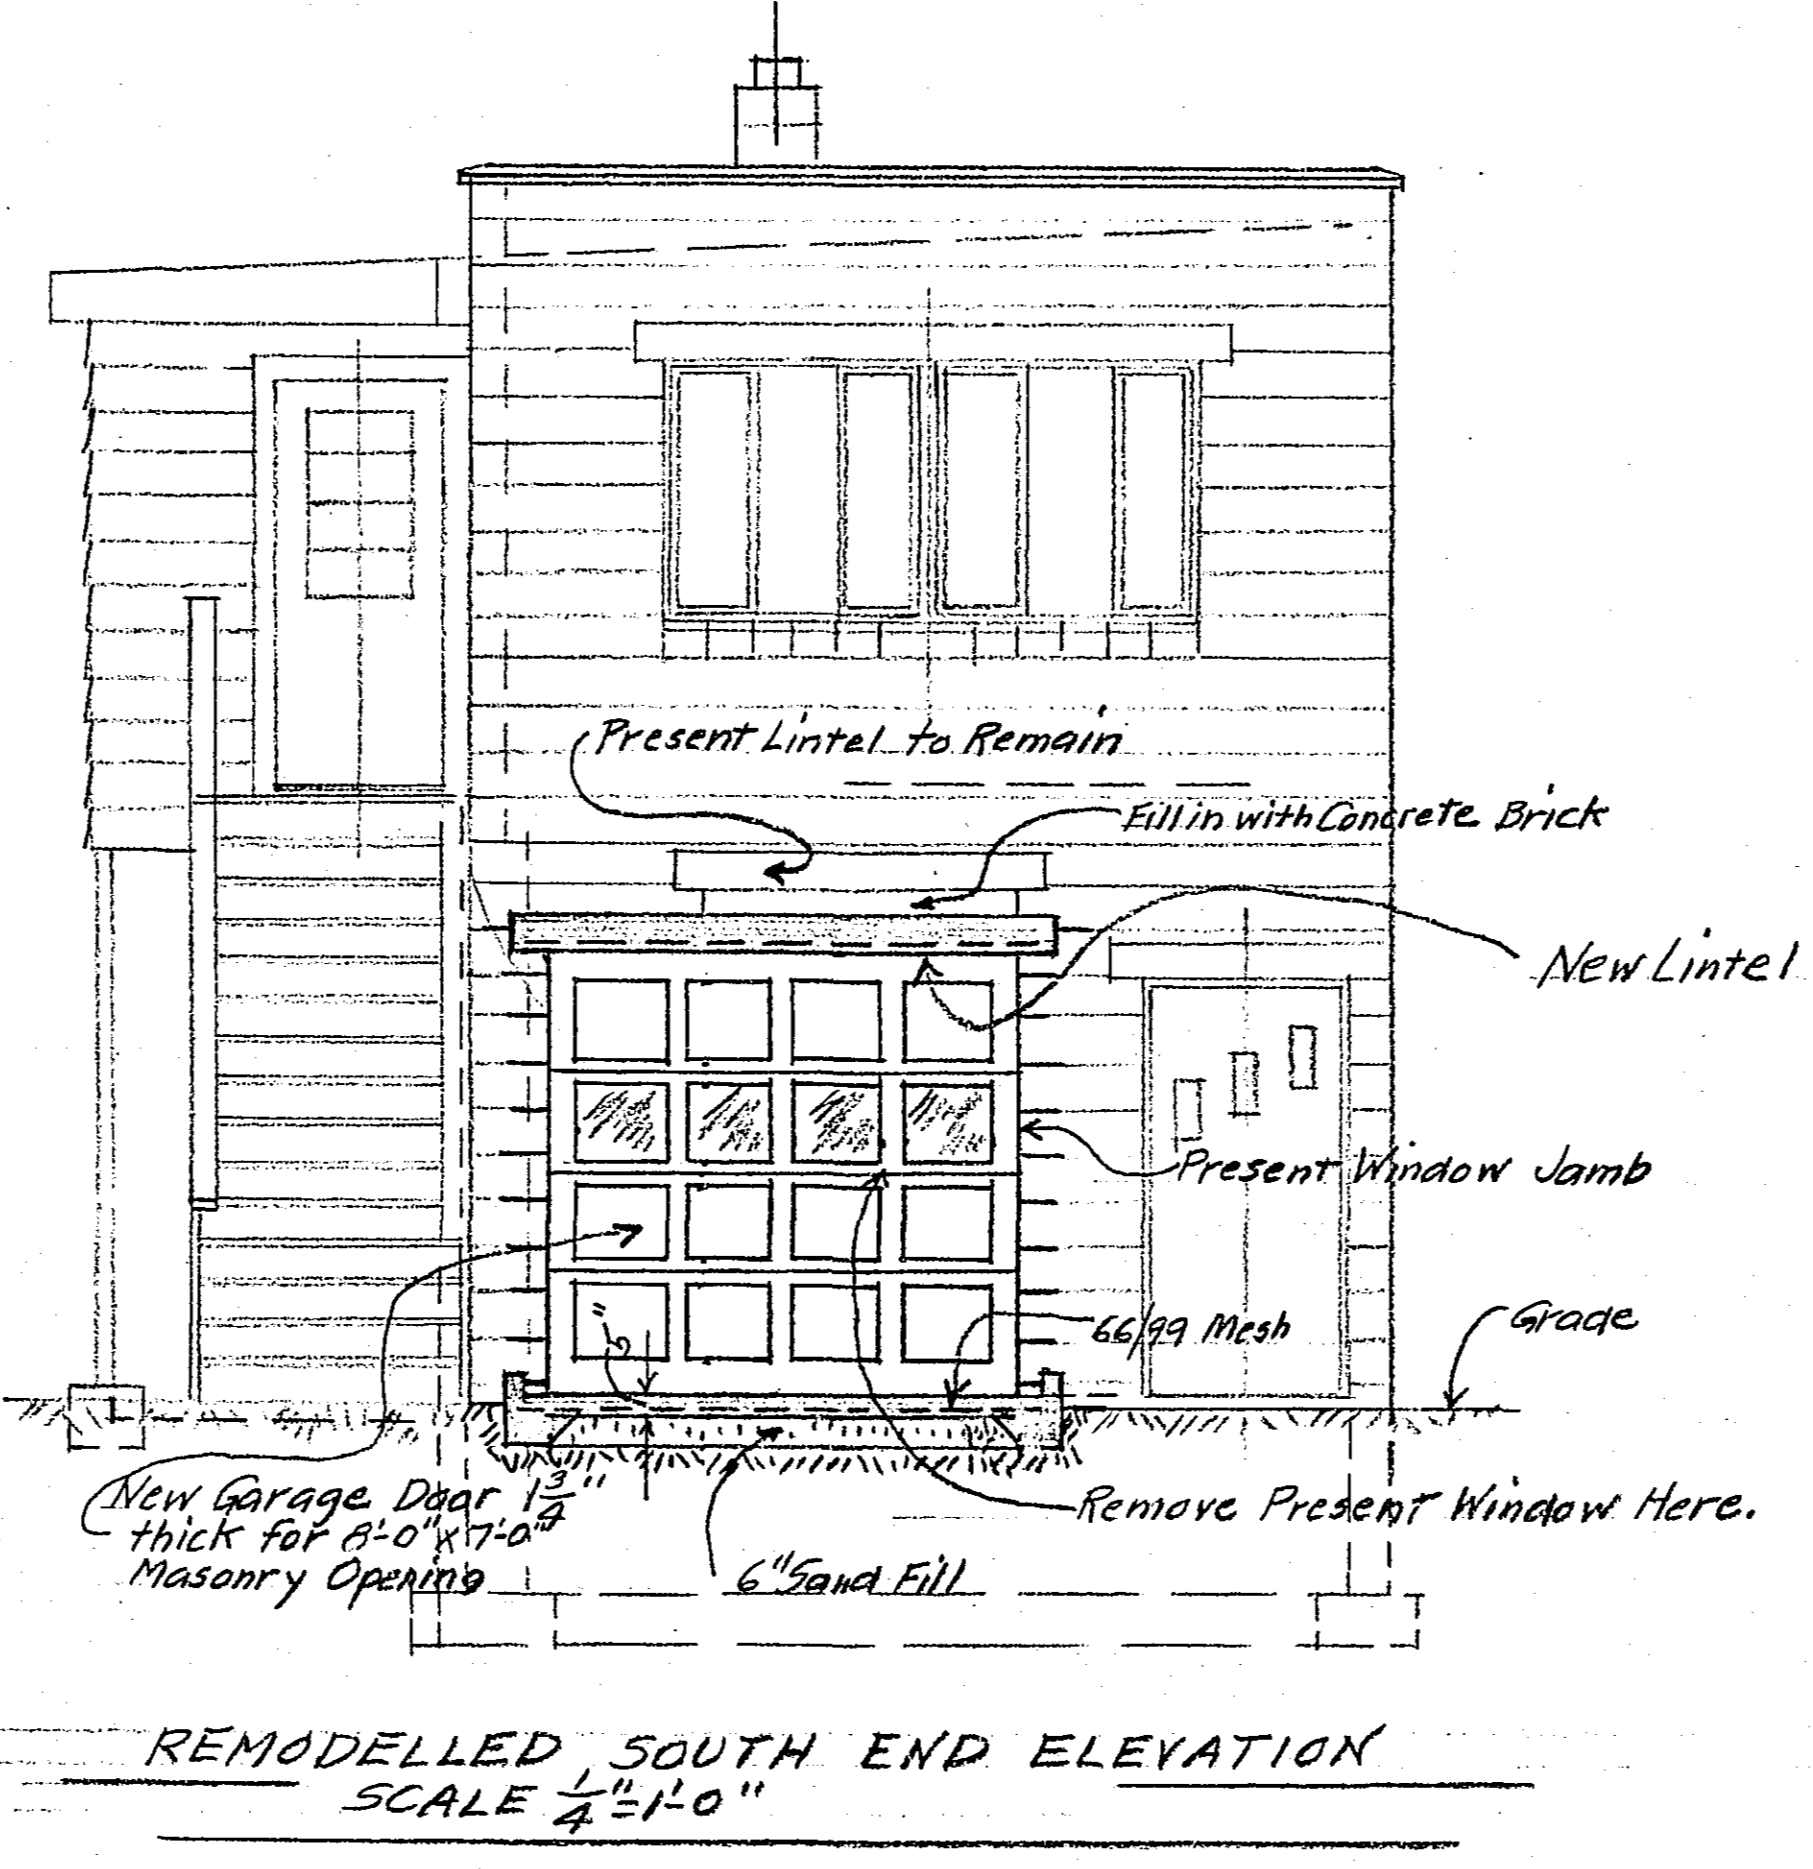 Present Lintel to Remain
Fill in with Concrete Brick
New Lintel
Present Window Jamb
66/99 Mesh
Grade
New Garage Door 1 3/4"
thick for 8'-0" x 7'-0"
Masonry Opening
6" Sand Fill
Remove Present Window Here.
REMODELLED SOUTH END ELEVATION
SCALE 1/4" = 1'-0"